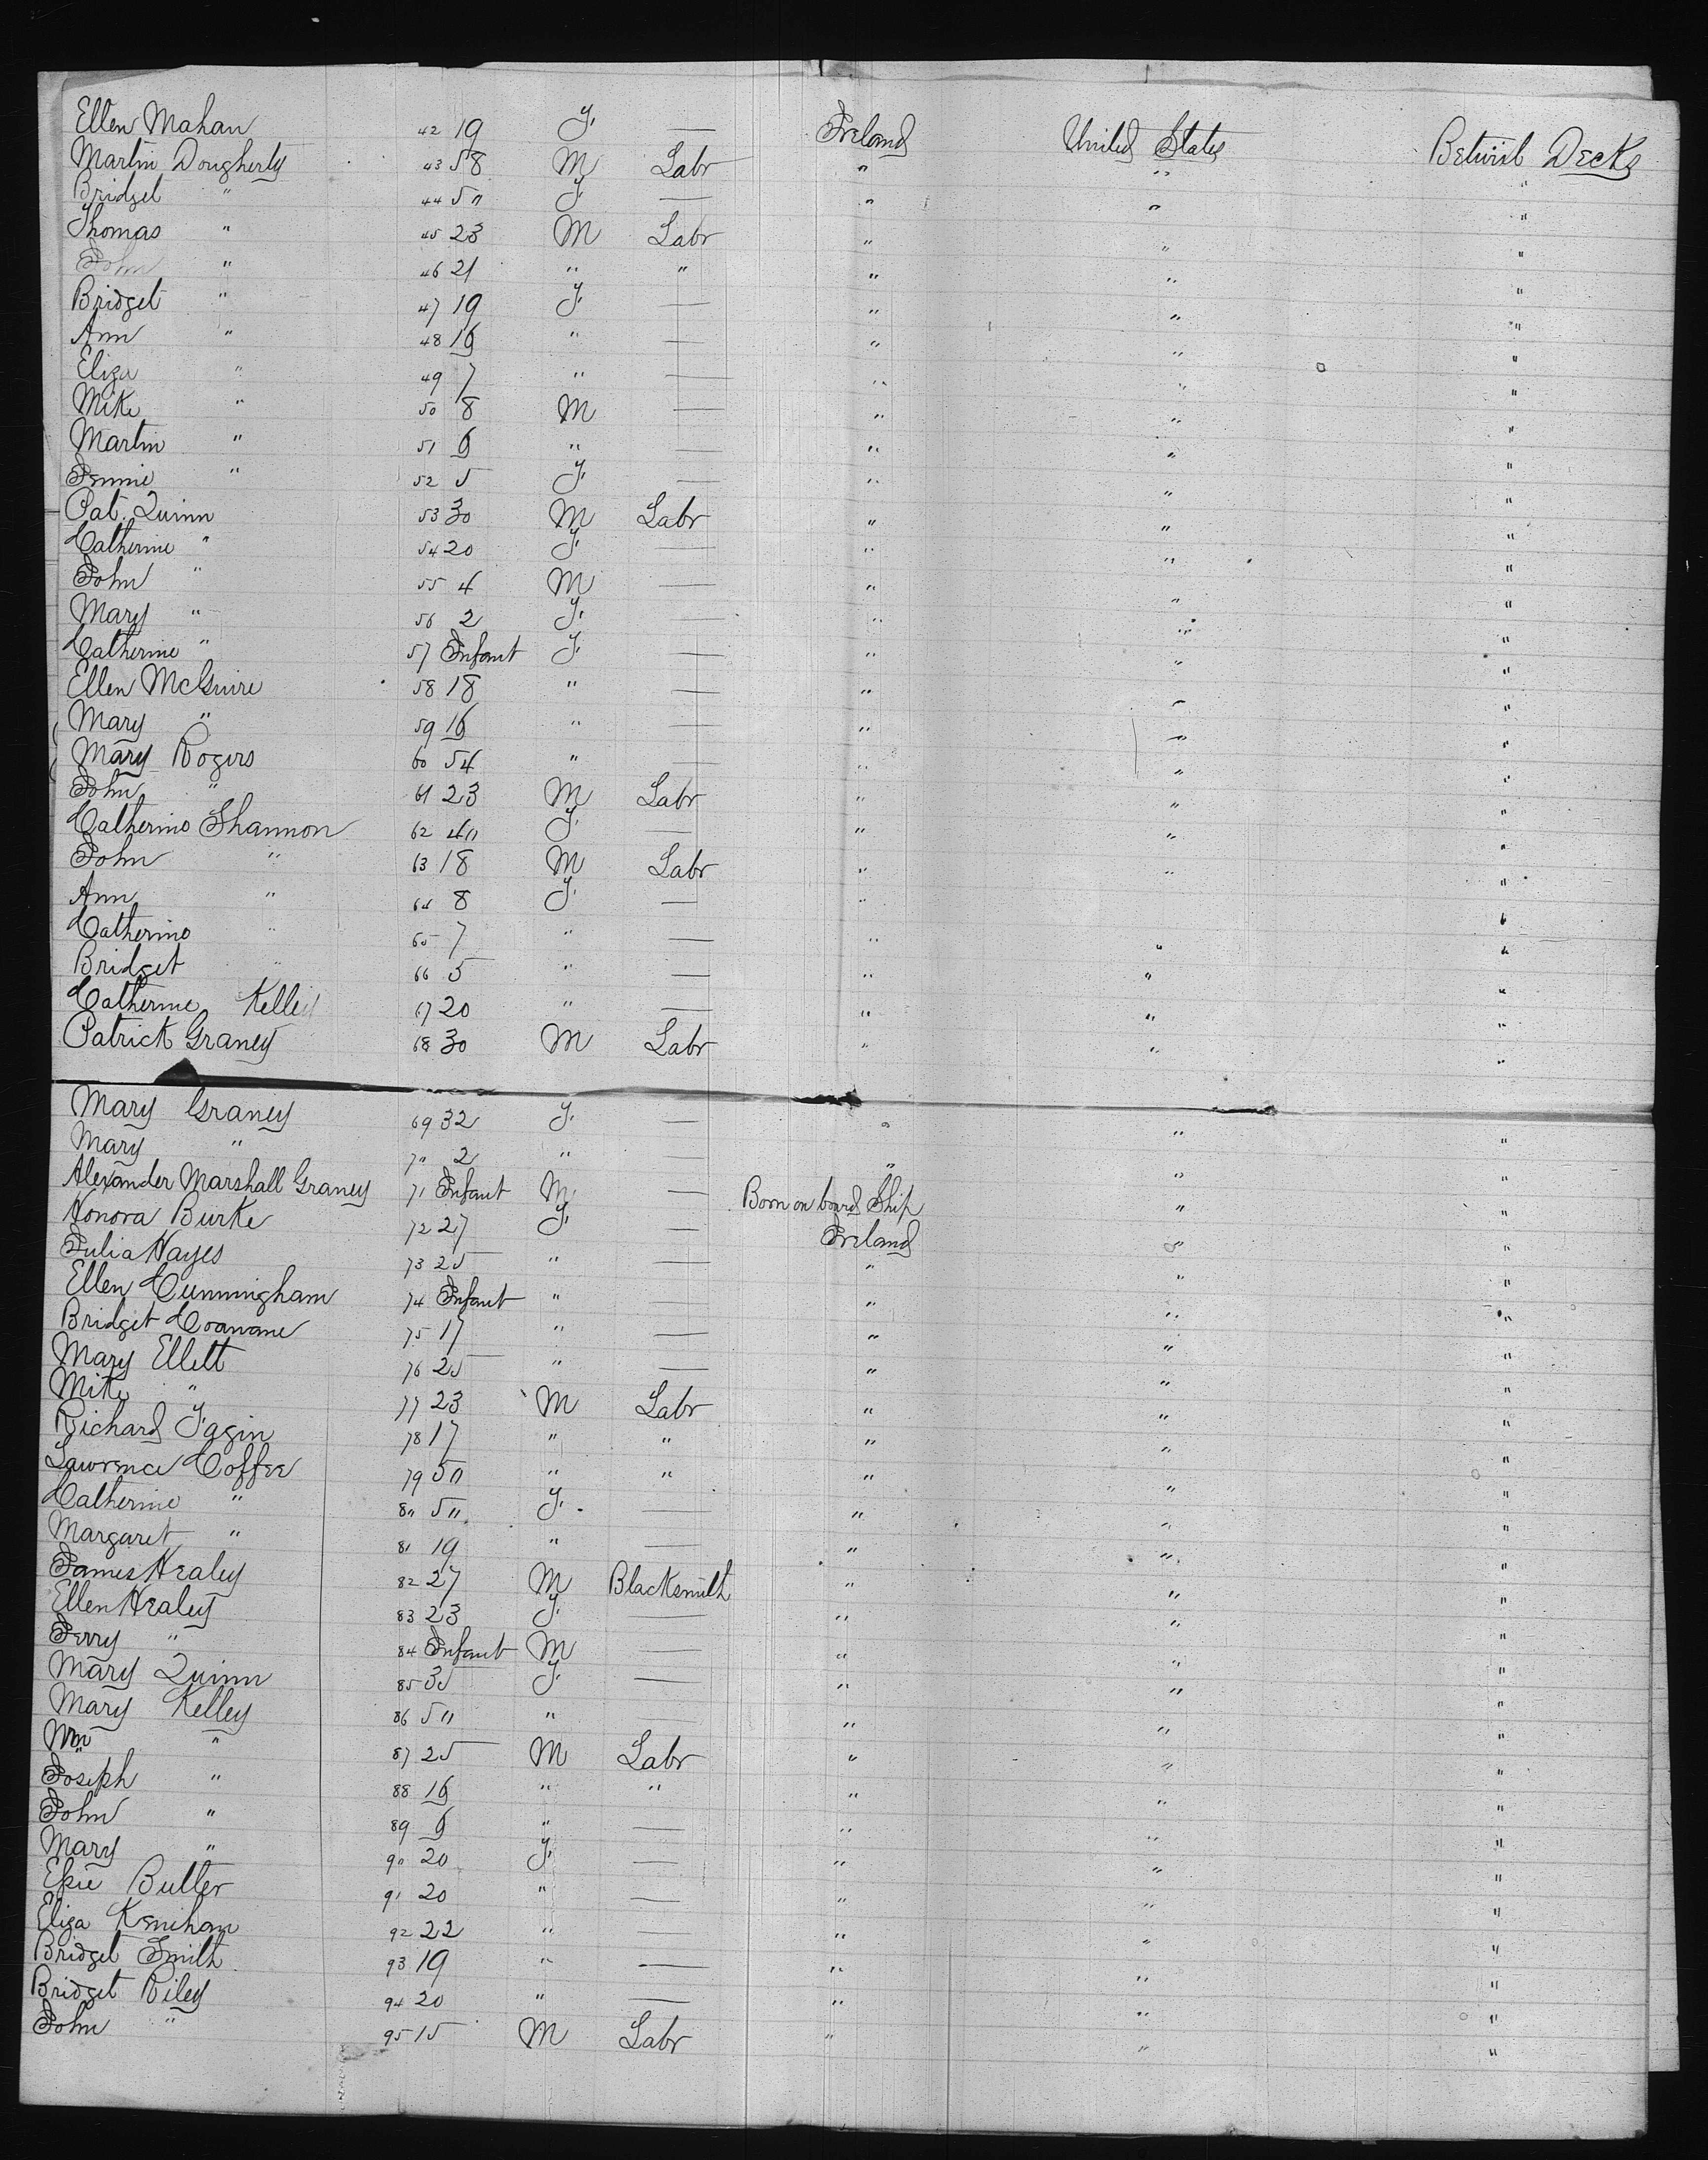 Ellen Mahan 42 19 F. — Ireland United States Betwixt Decks
Martin Dougherty 43 58 M Labr " " "
Bridget " 44 50 F — " " "
Thomas " 45 23 M Labr " " "
John " 46 21 " " " " "
Bridget " 47 19 F — " " "
Ann " 48 16 " — " " "
Eliza " 49 7 " — " " "
Mike " 50 8 M — " " "
Martin " 51 6 " — " " "
Jennie " 52 5 F — " " "
Pat. Quinn 53 30 M Labr " " "
Catherine " 54 20 F — " " "
John " 55 4 M — " " "
Mary " 56 2 F. — " " "
Catherine " 57 Infant F. — " " "
Ellen McGuire 58 18 " — " " "
Mary " 59 16 " — " " "
Mary Rogers 60 54 " — " " "
John " 61 23 M Labr " " "
Catherine Shannon 62 40 F. — " " "
John " 63 18 M Labr " " "
Ann " 64 8 F. — " " "
Catherine " 65 7 " — " " "
Bridget " 66 5 " — " " "
Catherine Kelley 67 20 " — " " "
Patrick Graney 68 30 M Labr " " "
Mary Graney 69 32 F. — " " "
Mary " 70 2 " — " " "
Alexander Marshall Graney 71 Infant M — Born on board Ship " "
Honora Burke 72 27 F. — Ireland " "
Julia Hayes 73 25 " — " " "
Ellen Cunningham 74 Infant " — " " "
Bridget 75 17 " — " " "
Mary Ellett 76 25 " — " " "
Mike " 77 23 M Labr " " "
Richard Fagin 78 17 " " " " "
Lawrence Coffee 79 50 " " " " "
Catherine " 80 50 F. — " " "
Margaret " 81 19 " — " " "
James Healey 82 27 M Blacksmith " " "
Ellen Healey 83 23 F. — " " "
Jerry " 84 Infant M — " " "
Mary Quinn 85 35 F. — " " "
Mary Kelley 86 50 " — " " "
Wm " 87 25 M Labr " " "
Joseph " 88 16 " " " " "
John " 89 6 " — " " "
Mary " 90 20 F. — " " "
Butler 91 20 " — " " "
Eliza Kenihan 92 22 " — " " "
Bridget Smith 93 19 " — " " "
Bridget Riley 94 20 " — " " "
John " 95 15 M Labr " " "